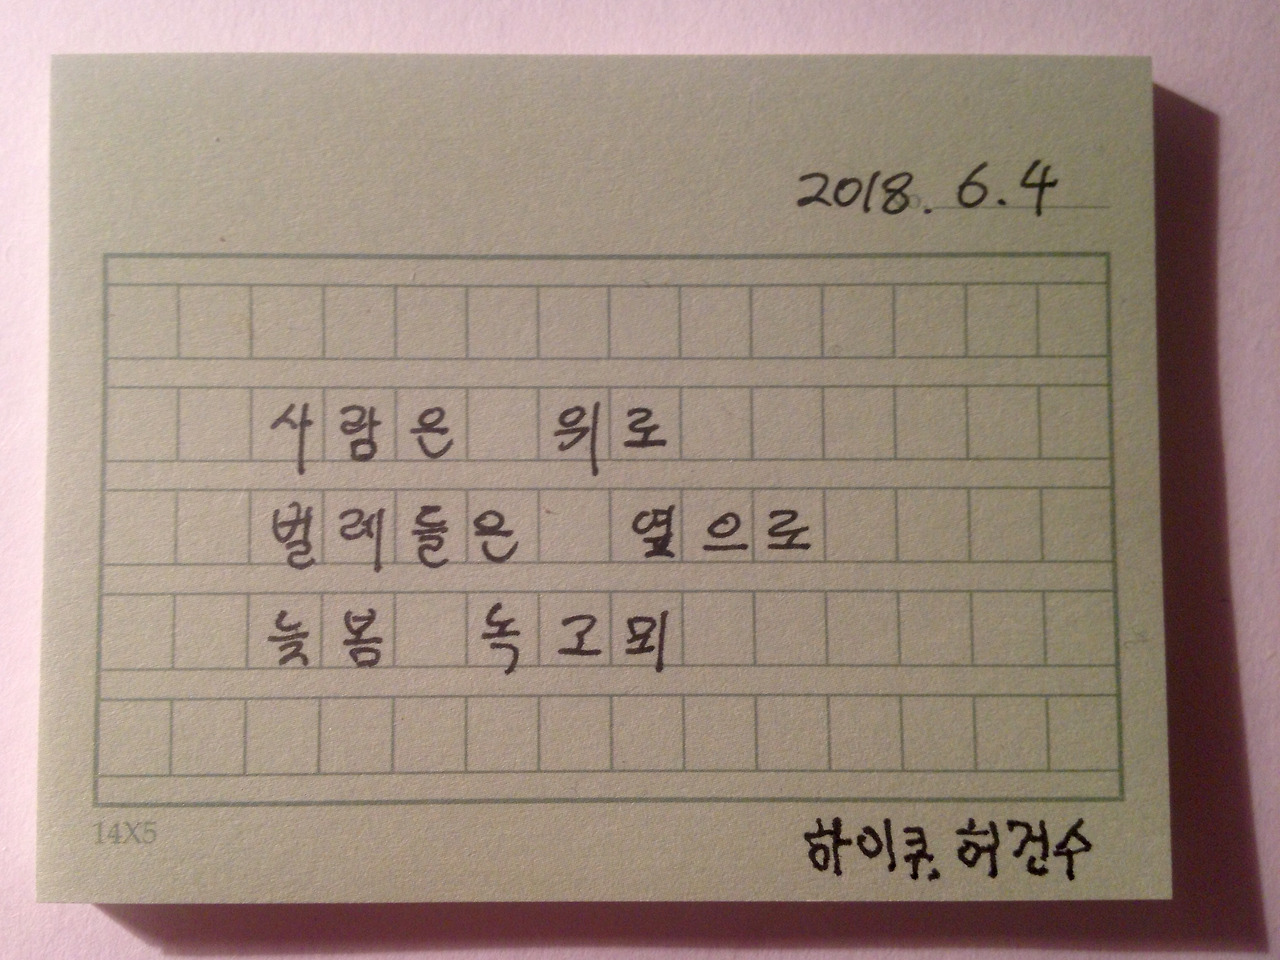 2018. 6. 4
사람은 위로
벌레들은 옆으로
늦봄 녹고뫼
14X5
하이쿠. 허건수